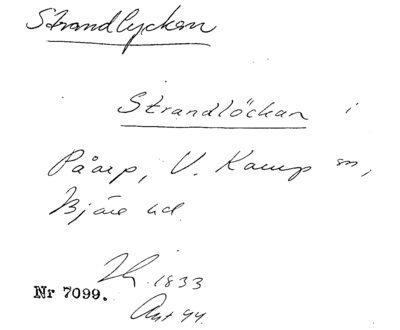 Strandlyckan
Strandlöckan i
Påarp, V. Karup sn,
Bjäre hd
1833
Nr 7099.
Akt 44